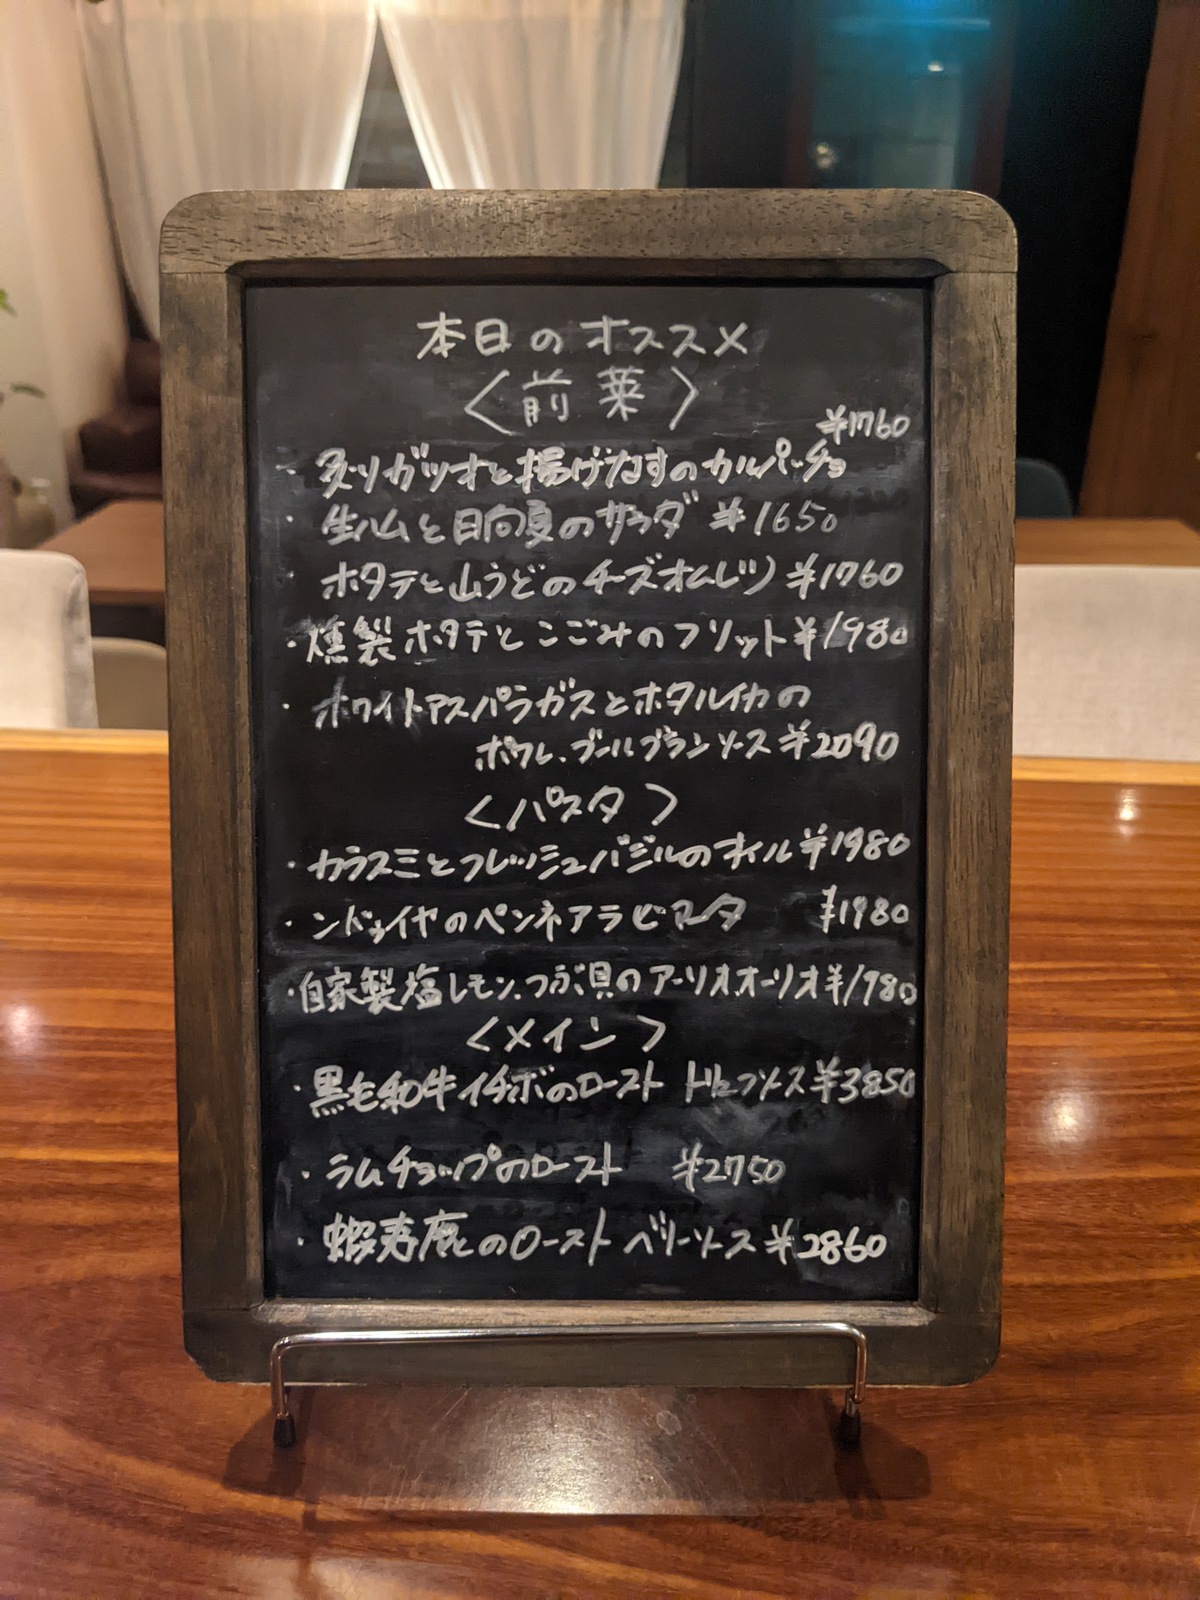 本日のオススメ
〈前菜〉
¥1760
・炙りガツオと揚げなすのカルパッチョ
・生ハムと日向夏のサラダ ¥1650
ホタテと山うどのチーズオムレツ ¥1760
・燻製ホタテとこごみのフリット ¥1980
・ホワイトアスパラガスとホタルイカの
ポワレ、ブールブランソース ¥2090
〈パスタ〉
・カラスミとフレッシュバジルのオイル ¥1980
・ンドゥイヤのペンネアラビアータ ¥1980
・自家製塩レモン、つぶ貝のアーリオオーリオ ¥1980
〈メイン〉
・黒毛和牛イチボのロースト トリュフソース ¥3850
・ラムチョップのロースト ¥2750
・蝦夷鹿とのロースト ベリーソース ¥2860